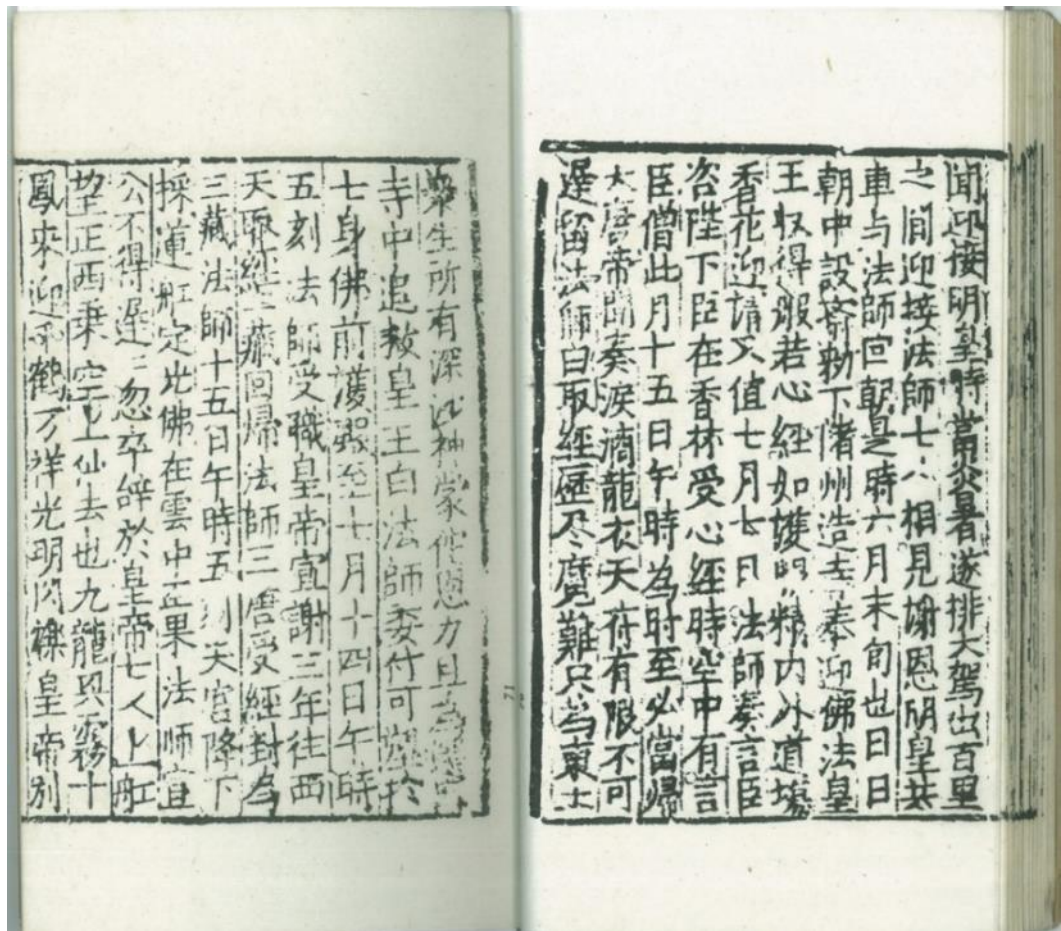 聞迎接明皇時當炎暑遂排大駕出百里
之間迎接法師七人相見謝恩明皇共
車与法師回朝是時六月末旬也日日
朝中設齋勑下諸州造寺奉迎佛法皇
王収得般若心經如獲眼精内外道場
香花迎請又值七月七日法師奏言臣
咨陛下臣在香林受心經時空中有言
臣僧此月十五日午時為時至必當歸
大唐帝聞奏淚滴龍衣天府有限不可
遲留法師曰取經歷尽魔難只為東土
衆生所有深沙神蒙佛恩力且
寺中追救皇王白法師委付可塑於
七身佛前護殿至七月十四日午時
五刻法師受職皇帝宣謝三年往西
天取經一藏回歸法師三度受經封為
三藏法師十五日午時五刻天宮降下
採蓮舡定光佛在雲中正果法師宜
公不得遲遲忽卒辞於皇帝七人上舡
望正西乗空上仙去也九龍興霧十
鳳來迎千鶴万祥光明閃爍皇帝別